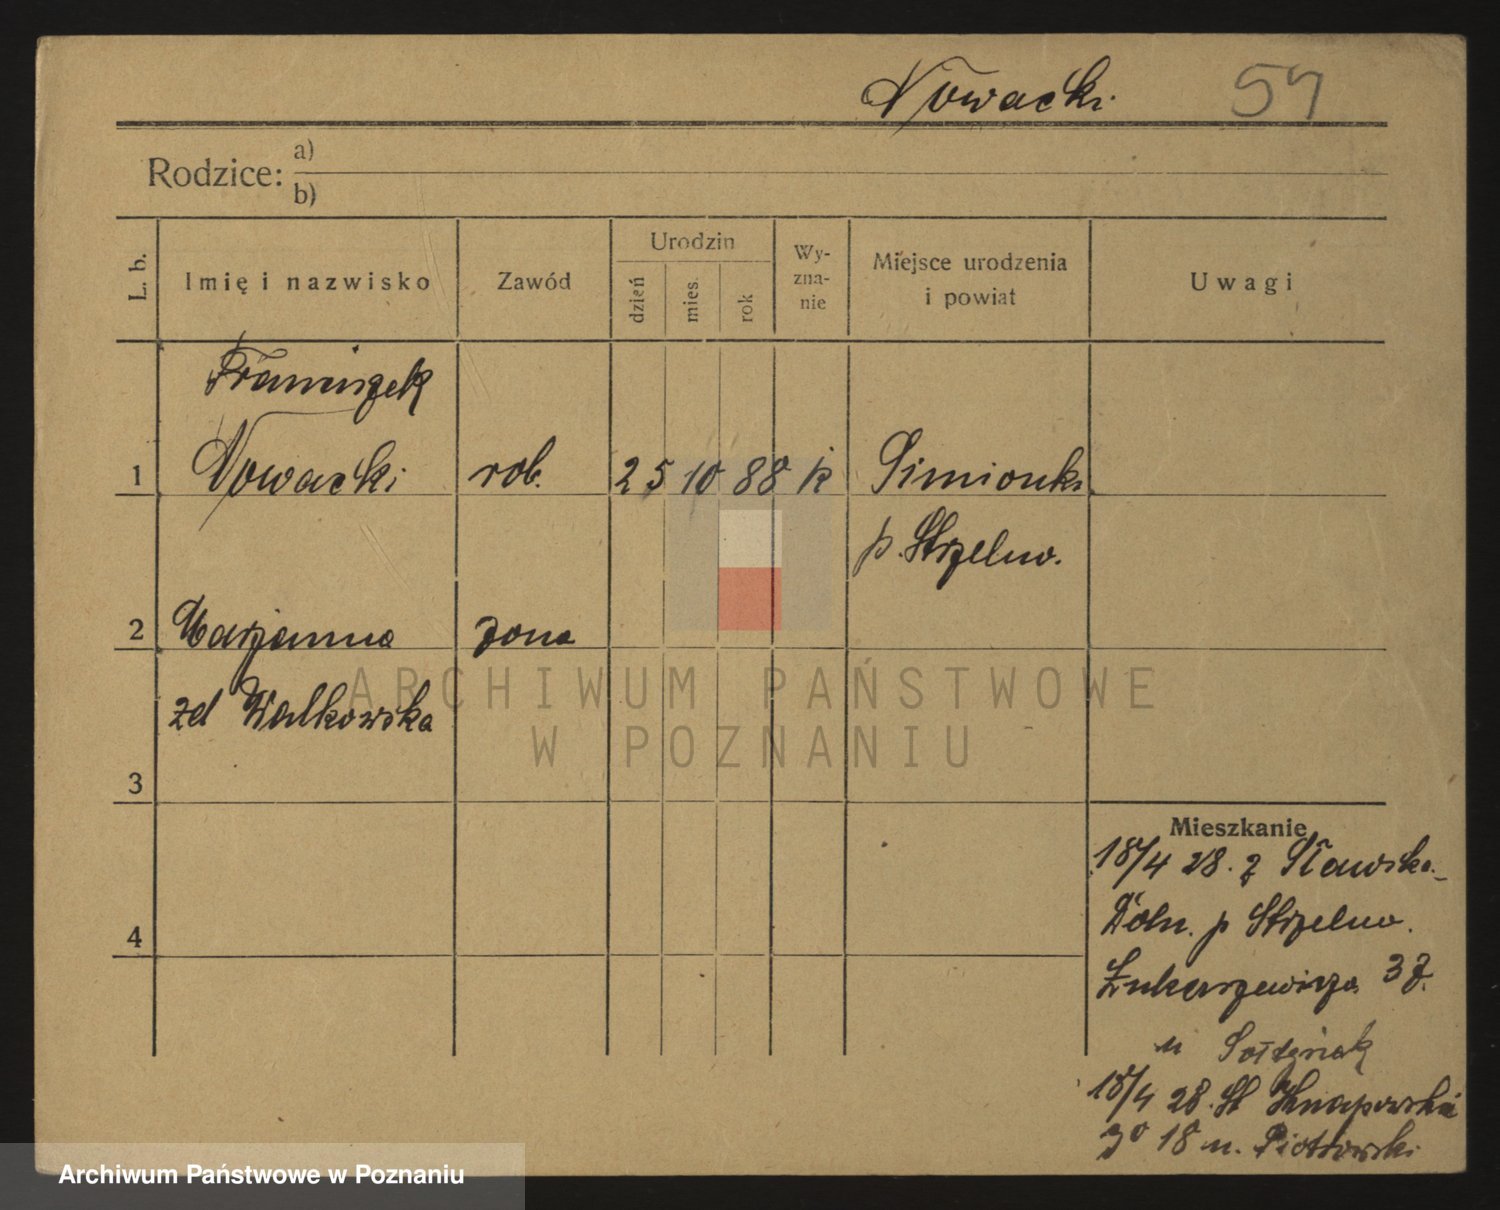 Nowacki 57
Rodzice: a)
b)
L. b. Imię i nazwisko Zawód Urodzin dzień mies. rok Wy-zna-nie Miejsce urodzenia i powiat Uwagi
Franciszek
1 Nowacki rob. 25 10 88 k Simionki
p. Strzelno.
2 Marjanna żona
zd Walkowska
3
4
Mieszkanie
18/4 28. z Sławsko-
Doln. p Strzelno.
Łukaszewicza
u
18/4 28. St Knapowskie
18 u. Piotrowski
ARCHIWUM PAŃSTWOWE
W POZNANIU
Archiwum Państwowe w Poznaniu